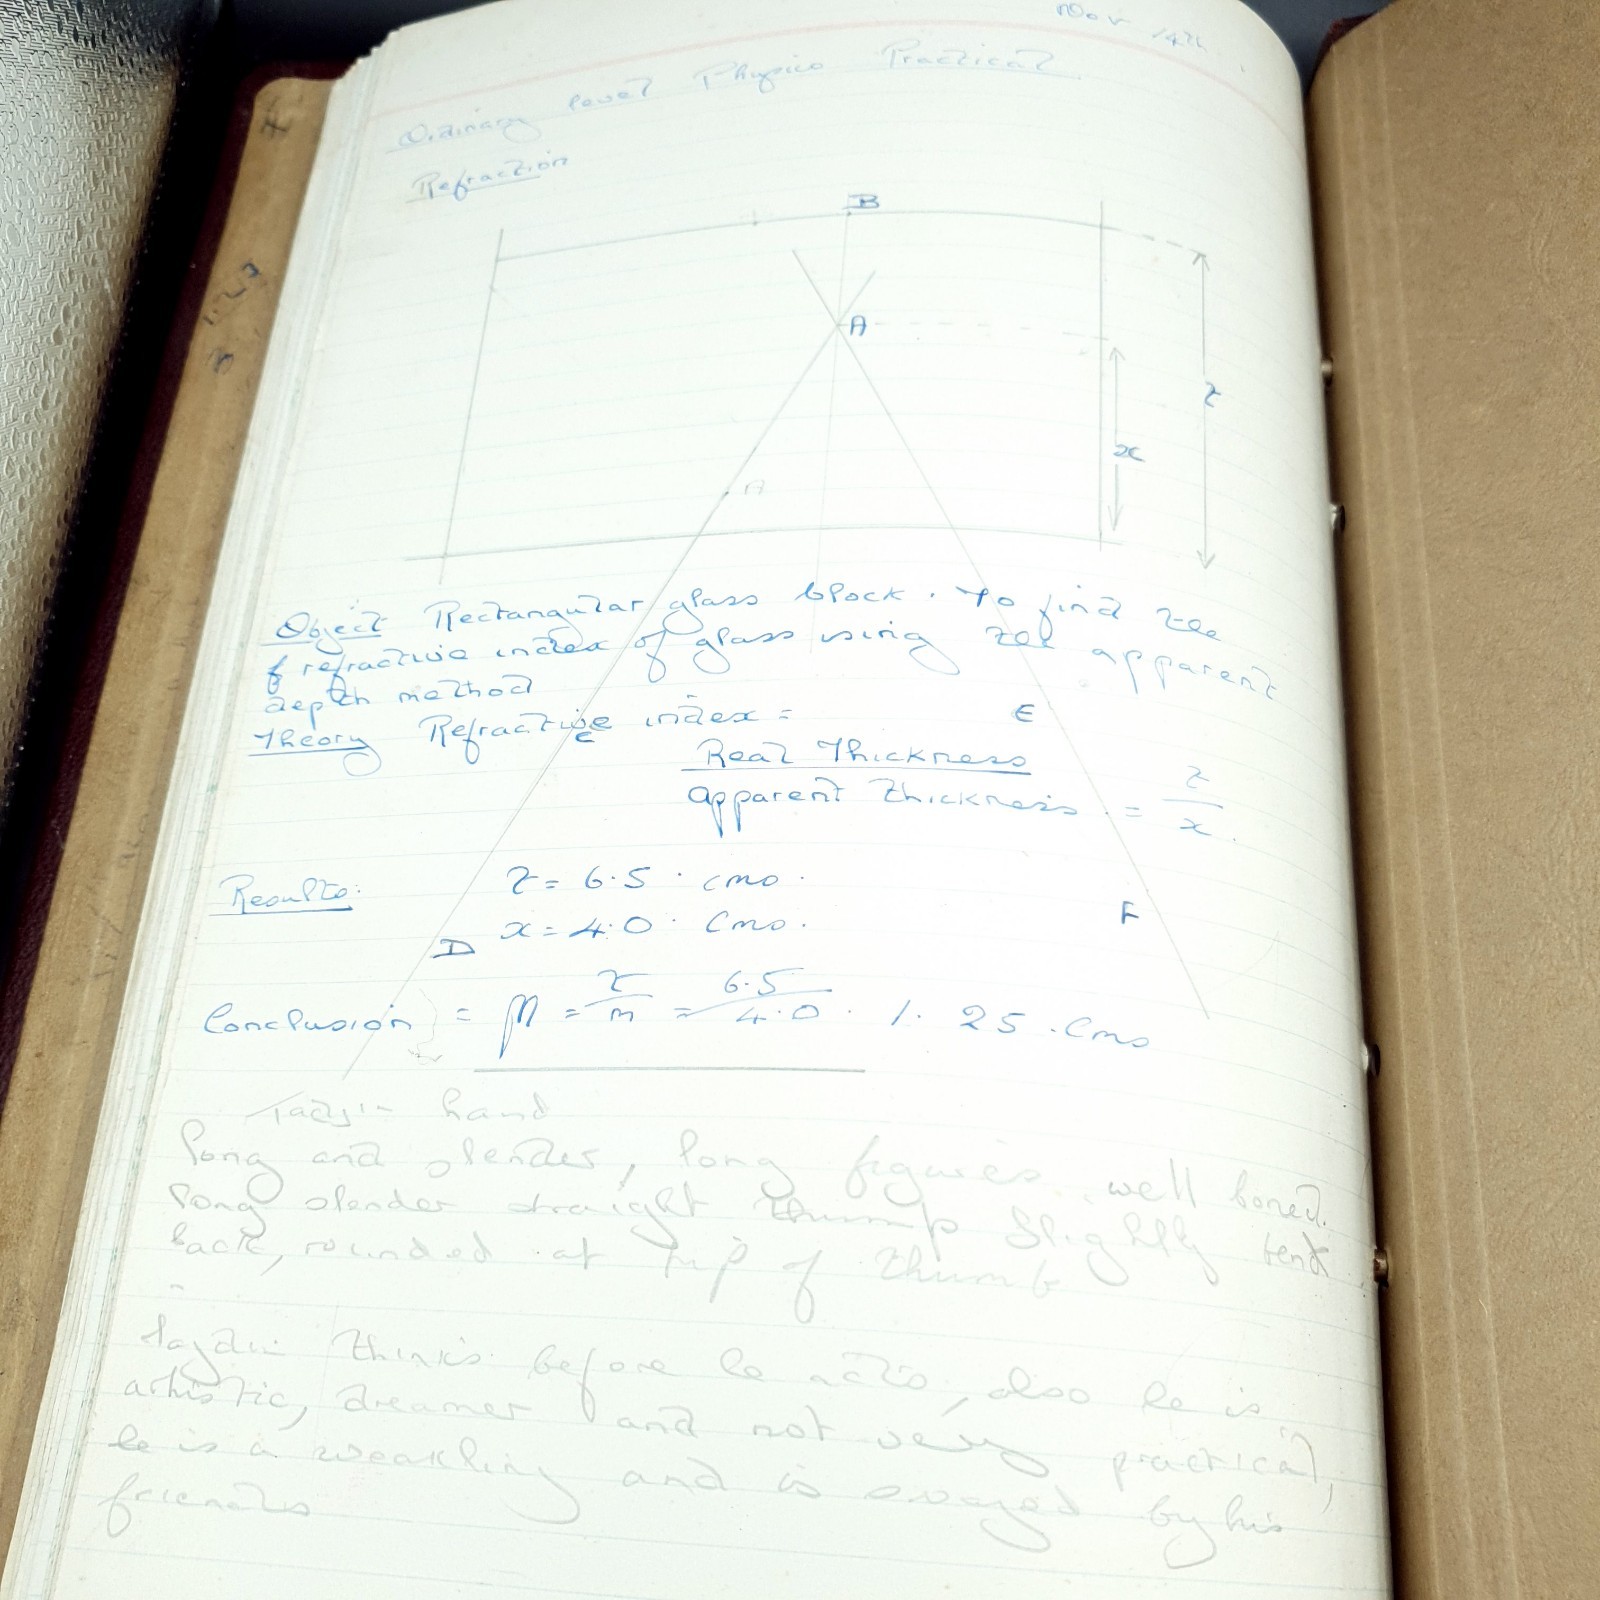 Nov 14th
Ordinary level Physics Practical
Refraction
B
A
t
x
A
Object Rectangular glass block. To find the
refractive index of glass using the apparent
depth method
Theory Refractive index =
C
E
Real Thickness
apparent thickness = t
x
Results: t = 6.5 cms.
x = 4.0 cms.
D
F
Conclusion = M = t/m = 6.5/4.0 . 1.25 . Cms
hand
long and slender, long figures, well boned.
long slender straight thump slightly bent
back, rounded at tip of thumb
thinks before he acts, also he is
artistic, dreamer and not very practical,
he is a weakling and is swayed by his
friends